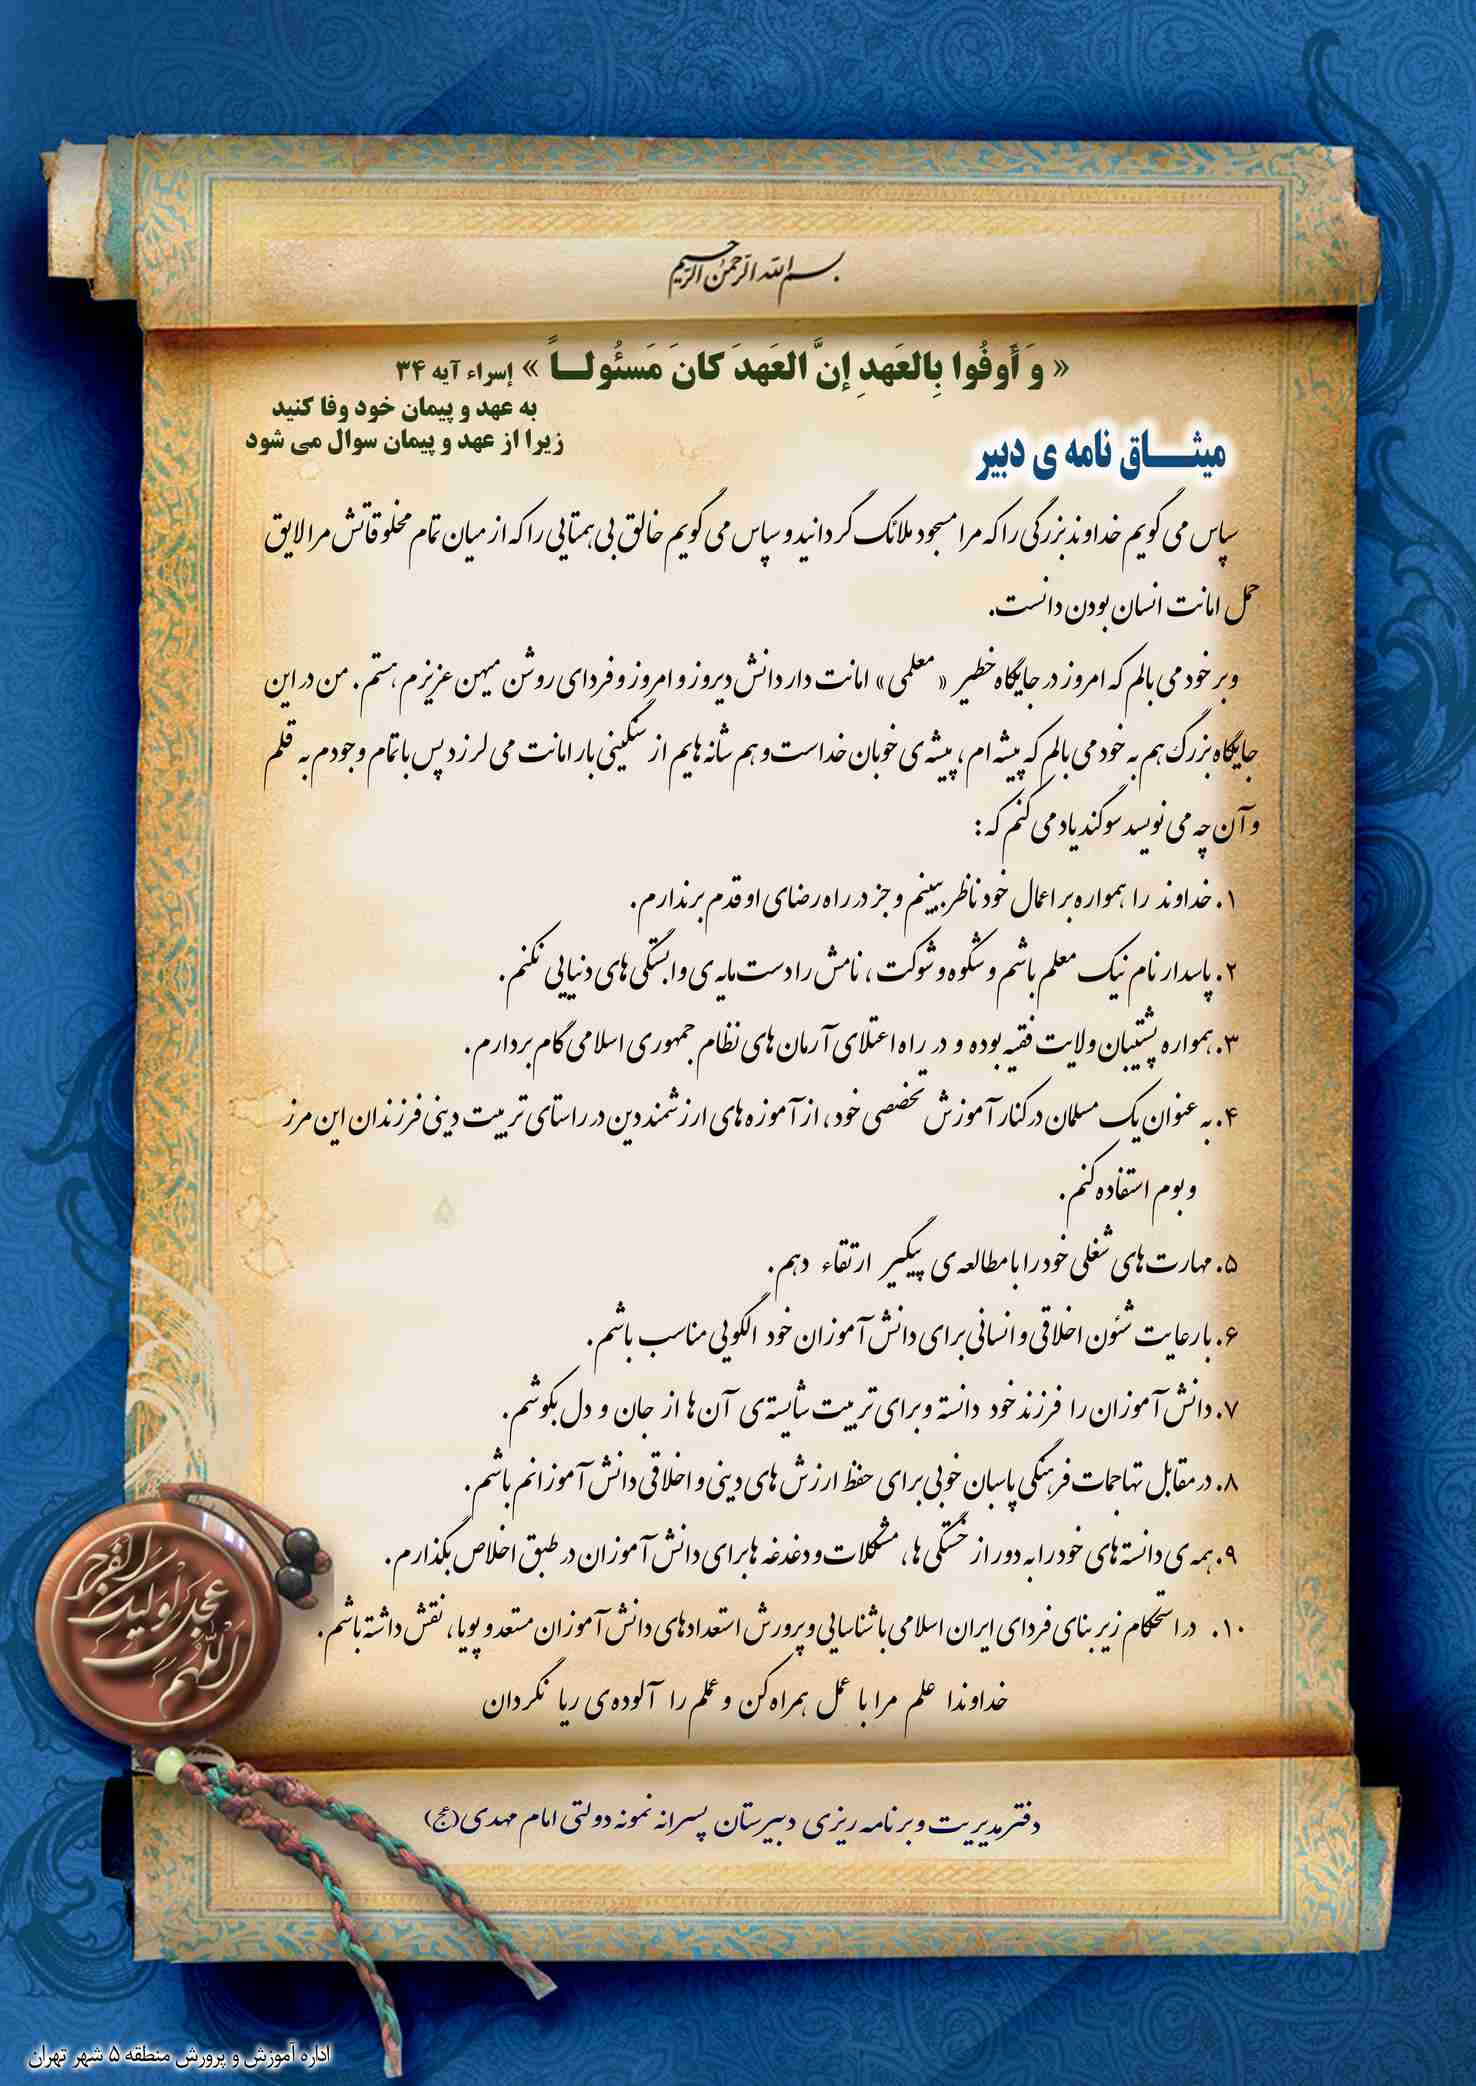 بسم الله الرحمن الرحیم
« وَ أَوفُوا بِالعَهدِ إنَّ العَهدَ کانَ مَسئُولاً » إسراء آیه ۳۴
به عهد و پیمان خود وفا کنید
زیرا از عهد و پیمان سوال می شود
میثاق نامه ی دبیر
سپاس می گویم خداوند بزرگی را که مرا مسجود ملائک گردانید و سپاس می گویم خالق بی همتایی را که از میان تمام مخلوقاتش مرا لایق
حمل امانت انسان بودن دانست.
و بر خود می بالم که امروز در جایگاه خطیر « معلمی » امانت دار دانش دیروز و امروز و فردای روشن میهن عزیزم هستم . من در این
جایگاه بزرگ هم به خود می بالم که پیشه ام ، پیشه ی خوبان خداست و هم شانه هایم از سنگینی بار امانت می لرزد پس با تمام وجودم به قلم
و آن چه می نویسد سوگند یاد می کنم که :
۱. خداوند را همواره بر اعمال خود ناظر ببینم و جز در راه رضای او قدم برندارم.
۲. پاسدار نام نیک معلم باشم و شکوه و شوکت ، نامش را دست مایه ی وابستگی های دنیایی نکنم .
۳. همواره پشتیبان ولایت فقیه بوده و در راه اعتلای آرمان های نظام جمهوری اسلامی گام بردارم.
۴. به عنوان یک مسلمان در کنار آموزش تخصصی خود ، از آموزه های ارزشمند دین در راستای تربیت دینی فرزندان این مرز
و بوم استفاده کنم .
۵. مهارت های شغلی خود را با مطالعه ی پیگیر ارتقاء دهم .
۶. با رعایت شئون اخلاقی و انسانی برای دانش آموزان خود الگویی مناسب باشم .
۷. دانش آموزان را فرزند خود دانسته و برای تربیت شایسته ی آن ها از جان و دل بکوشم .
۸. در مقابل تهاجمات فرهنگی پاسبان خوبی برای حفظ ارزش های دینی و اخلاقی دانش آموزانم باشم .
۹. همه ی دانسته های خود را به دور از خستگی ها ، مشکلات و دغدغه ها برای دانش آموزان در طبق اخلاص بگذارم .
۱۰. در استحکام زیر بنای فردای ایران اسلامی با شناسایی و پرورش استعدادهای دانش آموزان مستعد و پویا ، نقش داشته باشم .
خداوندا علم مرا با عمل همراه کن و عملم را آلوده ی ریا نگردان
اللهم عجل لولیک الفرج
دفتر مدیریت و برنامه ریزی دبیرستان پسرانه نمونه دولتی امام مهدی (عج)
اداره آموزش و پرورش منطقه ۵ شهر تهران